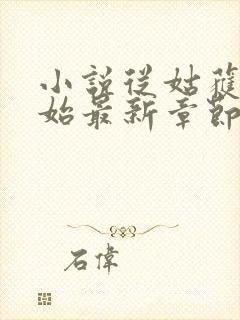 小說從姑蘇開
始最新章節
石偉